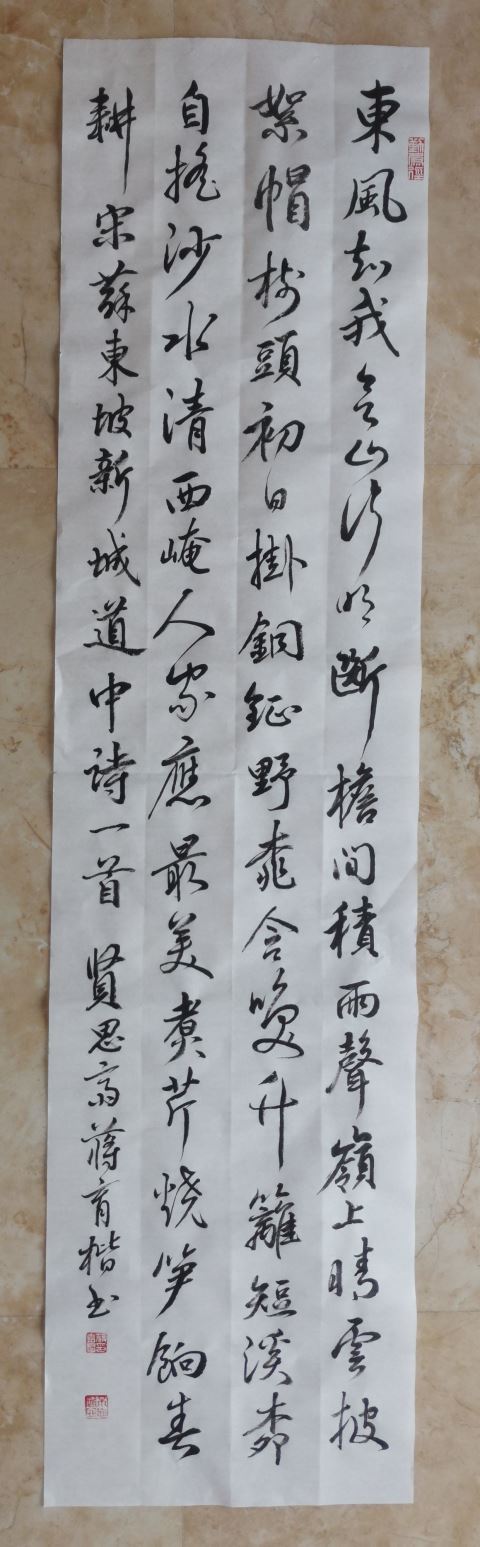 東風知我欲山行吹斷檐間積雨聲嶺上晴雲披
絮帽樹頭初日掛銅鉦野桃含咲竹籬短溪柳
自搖沙水清西崦人家應最美煮芹燒笋餉春
耕宋蘇東坡新城道中詩一首 賢思齋蔣育楷書